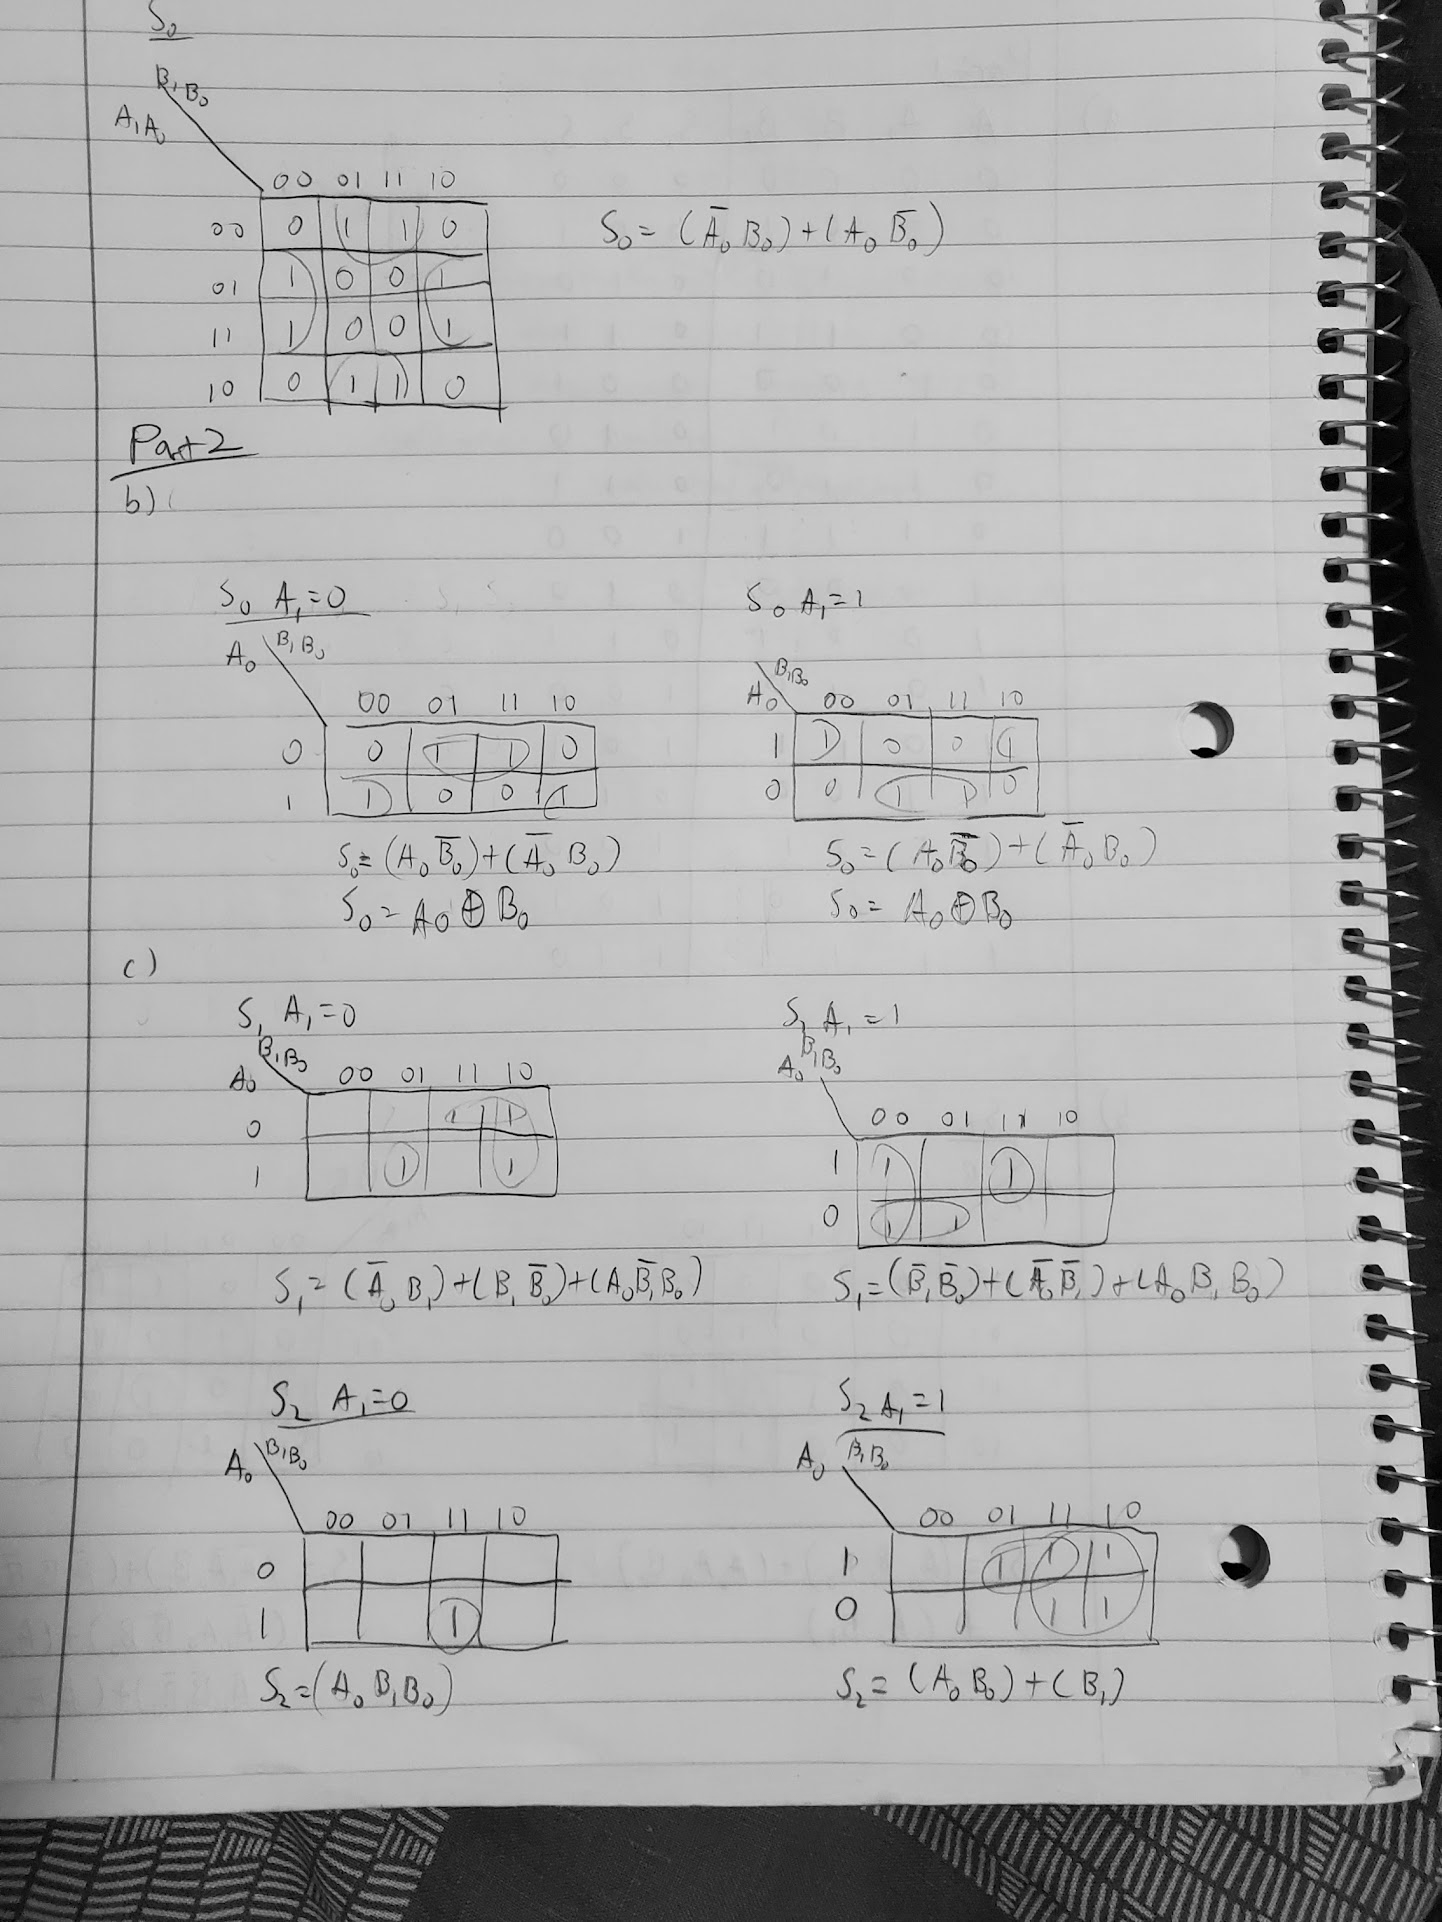 S₀
B₁B₀
A₁A₀
00 01 11 10
00 0 1 1 0
S₀ = (A̅₀ B₀) + (A₀ B̅₀)
01 1 0 0 1
11 1 0 0 1
10 0 1 1 0
Part 2
b)
S₀ A₁=0
B₁B₀
A₀
00 01 11 10
0 0 1 1 0
1 1 0 0 1
S₀= (A₀ B̅₀)+(A̅₀ B₀)
S₀= A₀ ⊕ B₀
S₀ A₁=1
B₁B₀
A₀ 00 01 11 10
1 1 0 0 1
0 0 1 1 0
S₀= (A₀ B̅₀)+(A̅₀ B₀)
S₀= A₀ ⊕ B₀
c)
S₁ A₁=0
B₁B₀
A₀ 00 01 11 10
0 1 1
1 1 1
S₁= (A̅₀ B₁)+(B₁ B̅₀)+(A₀ B̅₁ B₀)
S₁ A₁=1
B₁B₀
A₀
00 01 11 10
1 1 1
0 1 1
S₁= (B̅₁ B̅₀)+(A̅₀ B̅₁)+(A₀ B₁ B₀)
S₂ A₁=0
B₁B₀
A₀
00 01 11 10
0
1 1
S₂=(A₀ B₁ B₀)
S₂ A₁=1
A₀ B₁B₀
00 01 11 10
1 1 1 1
0 1 1
S₂= (A₀ B₀)+(B₁)